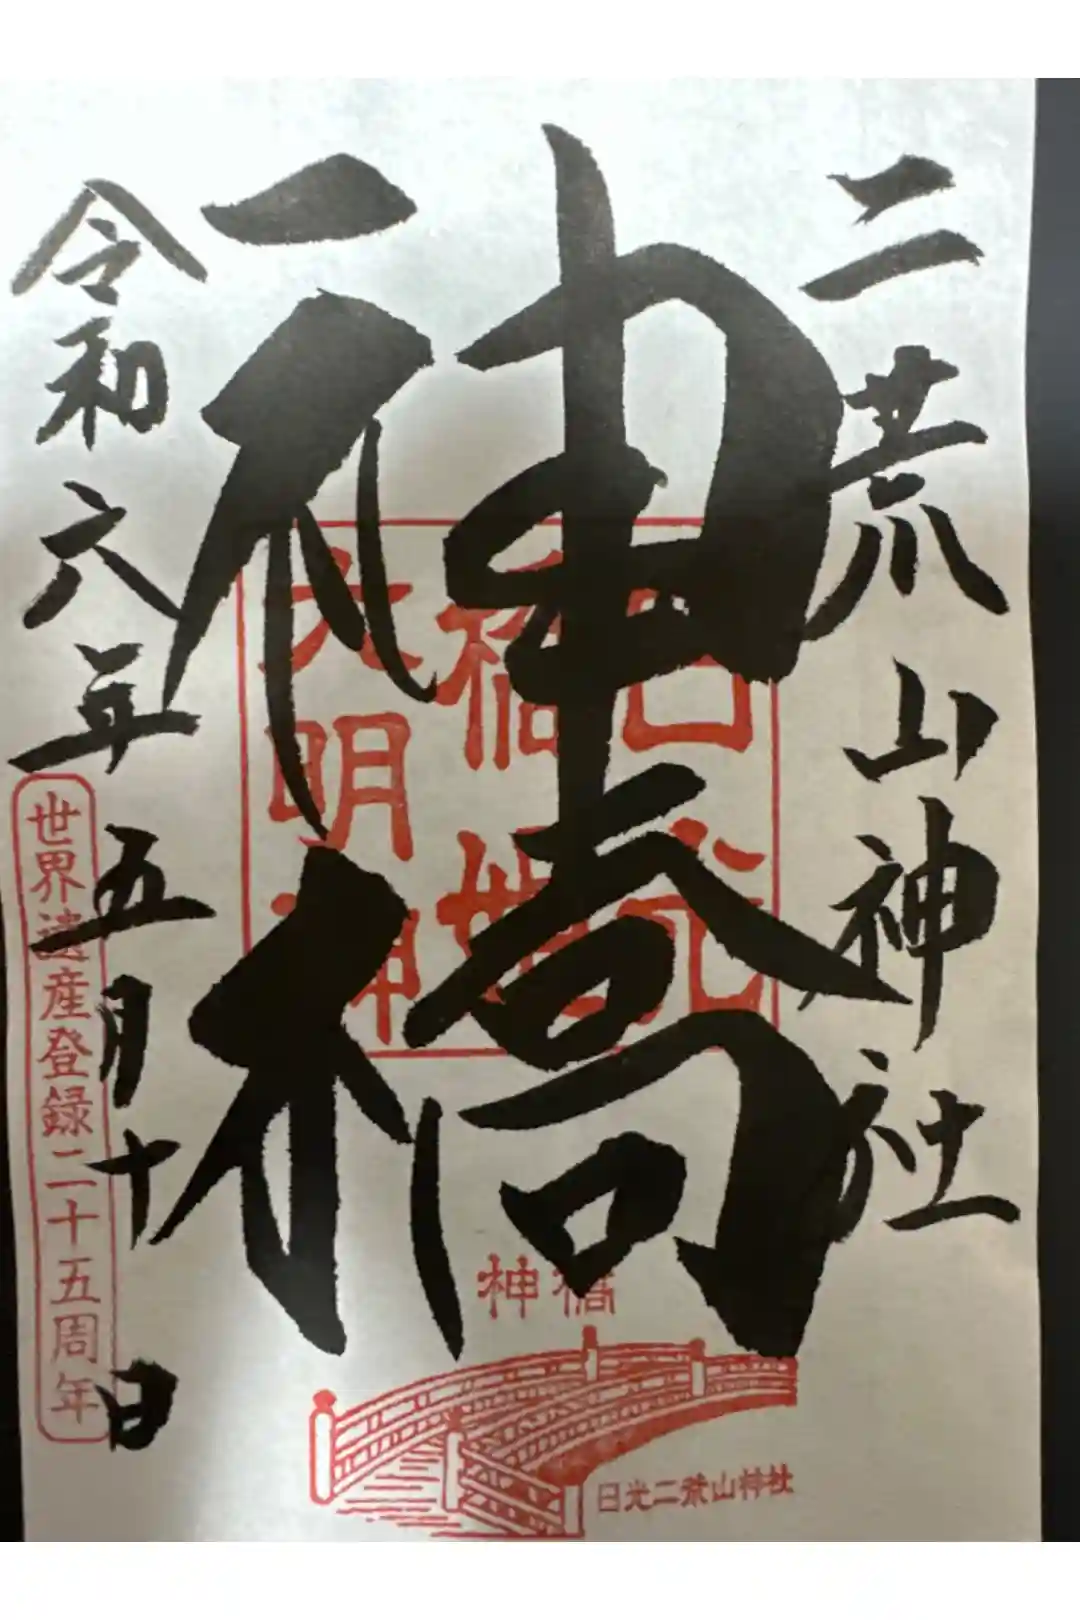 二荒山神社
神橋
令和六年五月十日
日光
橋姫
大明神
世界遺産登録二十五周年
神橋
日光二荒山神社